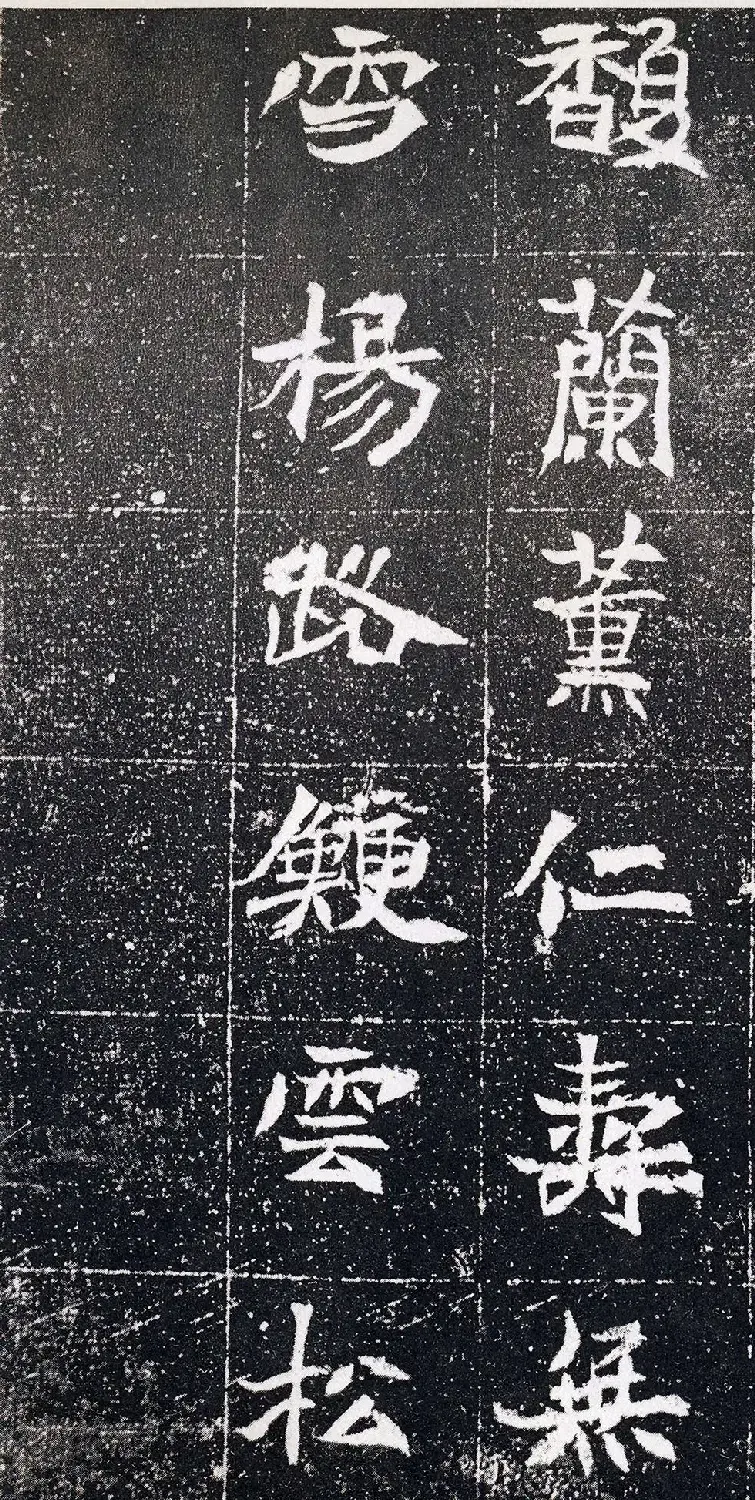 馥蘭薰仁壽無
雪楊路鯁雲松